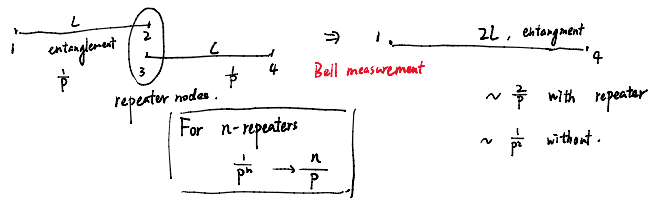 L
1 2
entanglement
1/P
3 L 4
1/P
repeater nodes.
⇒
Bell measurement
1 2L, entangment
4
~ 2/P with repeater
~ 1/P² without.
For n-repeaters
1/Pⁿ → n/P